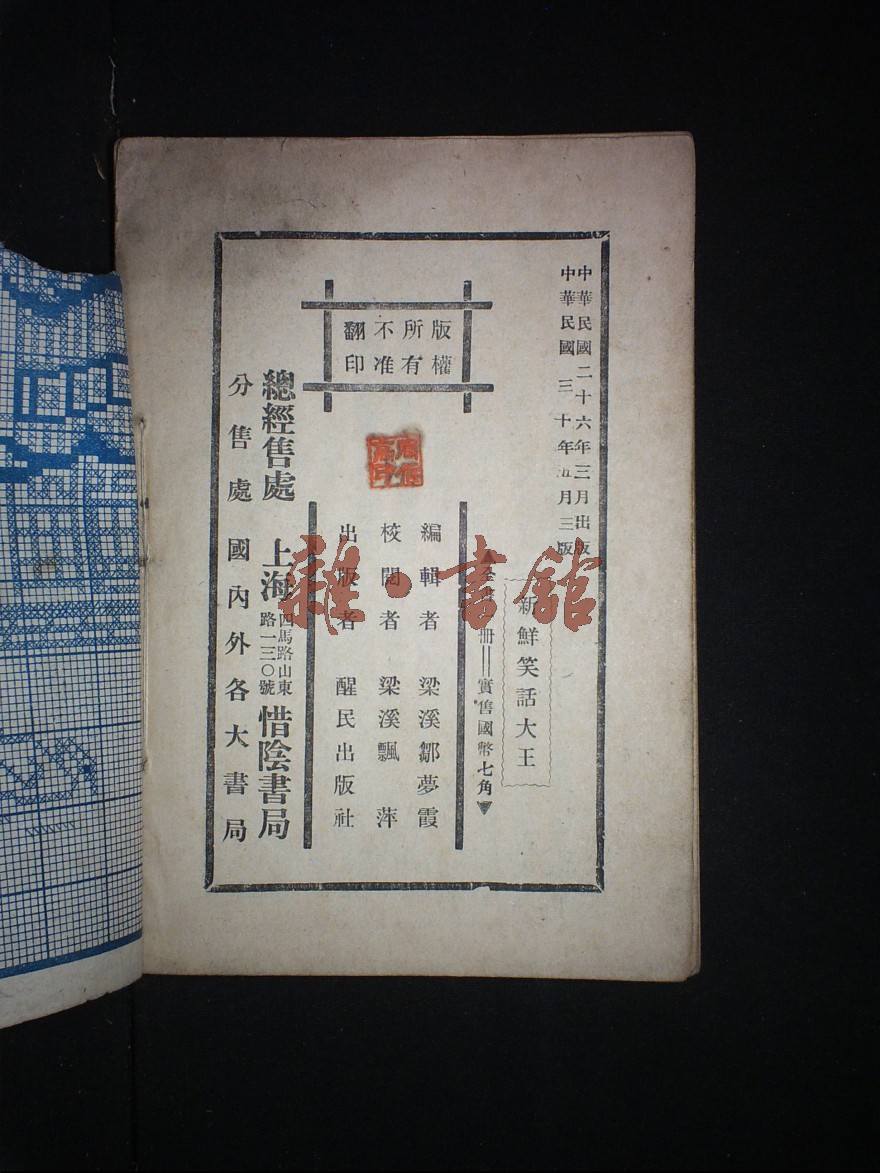 中華民國二十六年三月出版
中華民國三十年五月三版
新鮮笑話大王
▲全 冊＝實售國幣七角▼
版權
所有
不准
翻印
編輯者 梁溪鄒夢霞
校閱者 梁溪飄萍
出版者 醒民出版社
總經售處 上海四馬路山東路一三〇號惜陰書局
分售處 國內外各大書局
雜·書館